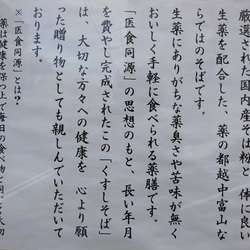 厳選された国産そば粉と、体に良い
生薬を配合した、薬の都越中富山な
らではのそばです。
生薬にありがちな薬臭さや苦味が無く
おいしく手軽に食べられる薬膳です。
「医食同源」の思想のもと、長い年月
を費やし完成されたこの「くすしそば」
は、大切な方々への健康を、心より願
った贈り物としても親しんでいただいて
おります。
※「医食同源」とは？
薬は健康を保つ上で毎日の食べ物と同じで大切